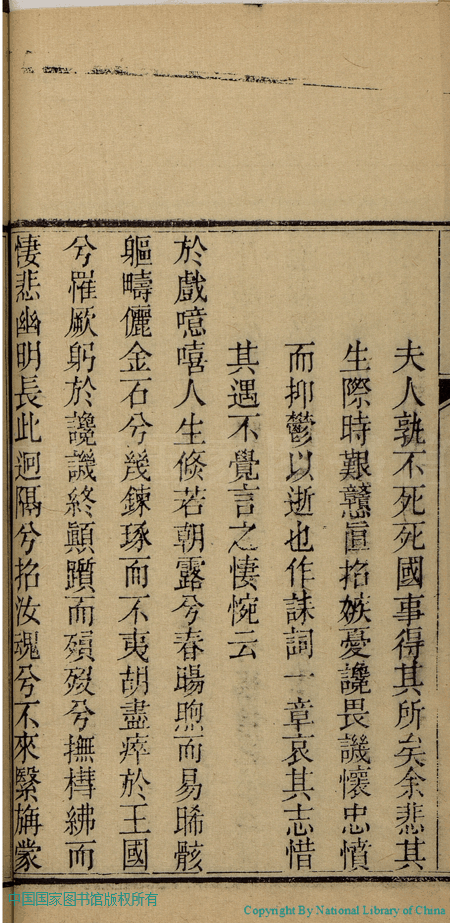 夫人孰不死死國事得其所矣余悲其
生際時艱戇直招嫉憂讒畏譏懷忠憤
而抑鬱以逝也作誄詞一章哀其志惜
其遇不覺言之悽惋云
於戲噫嘻人生倐若朝露兮春暘煦而易晞骸
軀疇儷金石兮幾鍊琢而不夷胡盡瘁於王國
兮罹厥躬於讒譏終顚躓而殞歿兮撫槥紼而
悽悲幽明長此迥隔兮招汝魂兮不來繄旃蒙
中国国家图书馆版权所有
Copyright By National Library of China